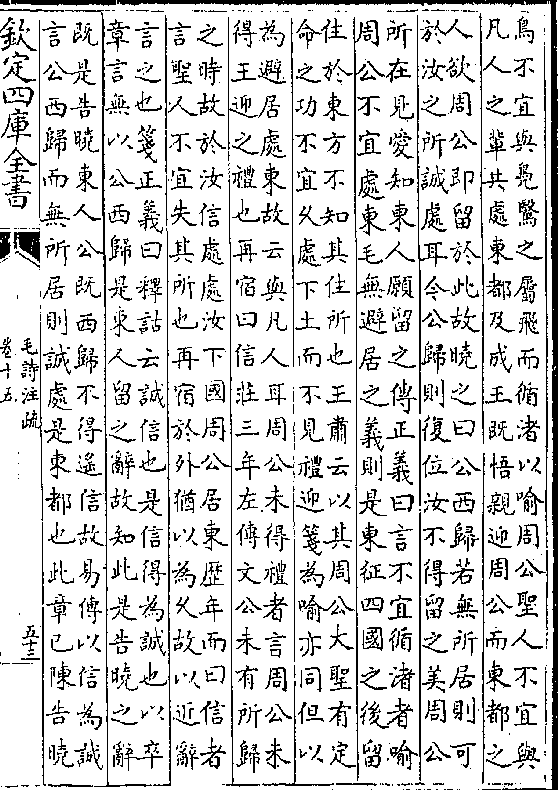 鳥不宜與鳧鷖之屬飛而循渚以喻周公聖人不宜與
凡人之輩共處東都及成王既悟親迎周公而東都之
人欲周公即留於此故曉之曰公西歸若無所居則可
於汝之所誠處耳今公歸則復位汝不得留之美周公
所在見愛知東人願留之傳正義曰言不宜循渚者喻
周公不宜處東毛無避居之義則是東征四國之後留
住於東方不知其住所也王肅云以其周公大聖有定
命之功不宜乆處下土而不見禮迎箋為喻亦同但以
為避居處東故云與凡人耳周公未得禮者言周公未
得王迎之禮也再宿曰信莊三年左傳文公未有所歸
之時故於汝信處處汝下國周公居東歴年而曰信者
言聖人不宜失其所也再宿於外猶以為乆故以近辭
言之也箋正義曰釋詁云誠信也是信得為誠也以卒
章言無以公西歸是東人留之辭故知此是告曉之辭
既是告曉東人公既西歸不得遥信故易傳以信為誠
言公西歸而無所居則誠處是東都也此章已陳告曉
欽定四庫全書
毛詩注疏
卷十五
五十三